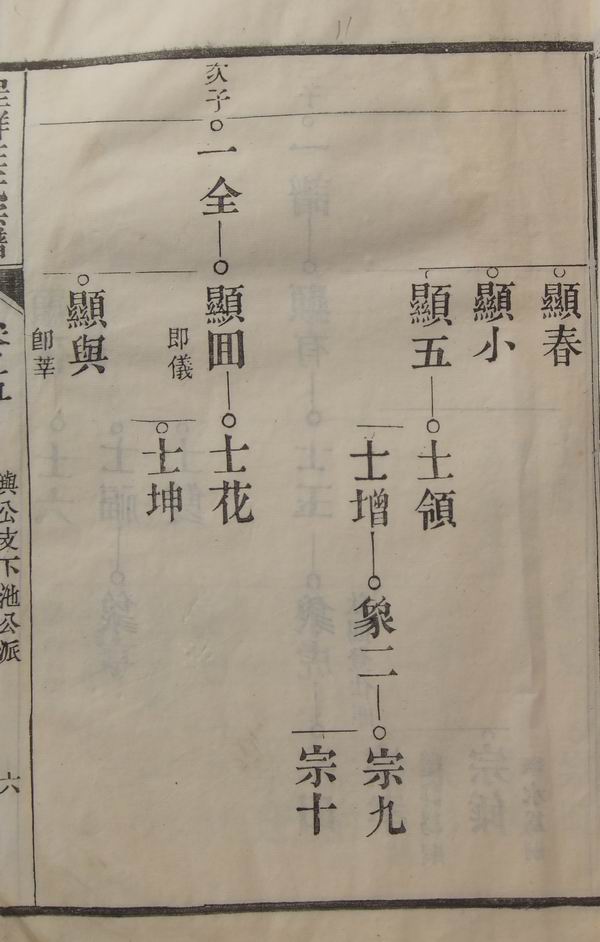 顯春
顯小
顯五
士領
士增
象二
宗九
宗十
次子
一全
顯囬
即儀
士花
士坤
顯與
卽莘
卷之五
興公支下池公派
六